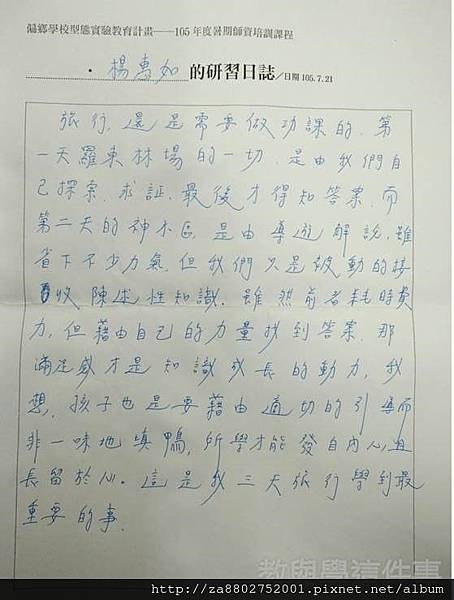 偏鄉學校型態實驗教育計畫——105年度暑期師資培訓課程
· 楊惠如 的研習日誌/日期 105.7.21
旅行,還是需要做功課的.第
一天羅東林場的一切.是由我們自
己探索.求証.最後才得知答案.而
第二天的神木區是由導遊解說.雖
省下不少力氣.但我們只是被動的接
收陳述性知識.雖然前者耗時費
力,但藉由自己的力量找到答案.那
滿足感才是知識成長的動力,我
想.孩子也是要藉由適切的引導而
非一味地填鴨,所學才能發自內心且
長留於心.這是我三天旅行學到最
重要的事.
教與學這件事
http://za8802752001.pixnet.net/album